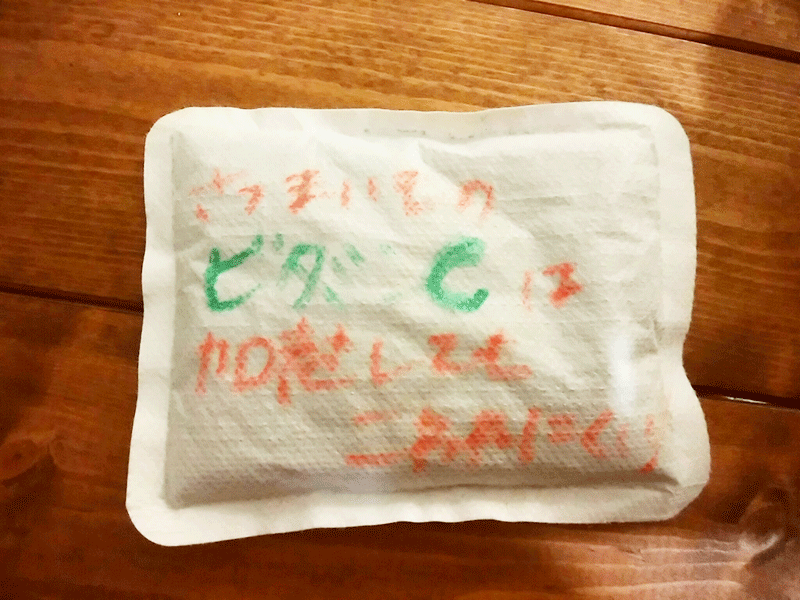 さつまいもの
ビタミンCは
加熱しても
こわれにくい